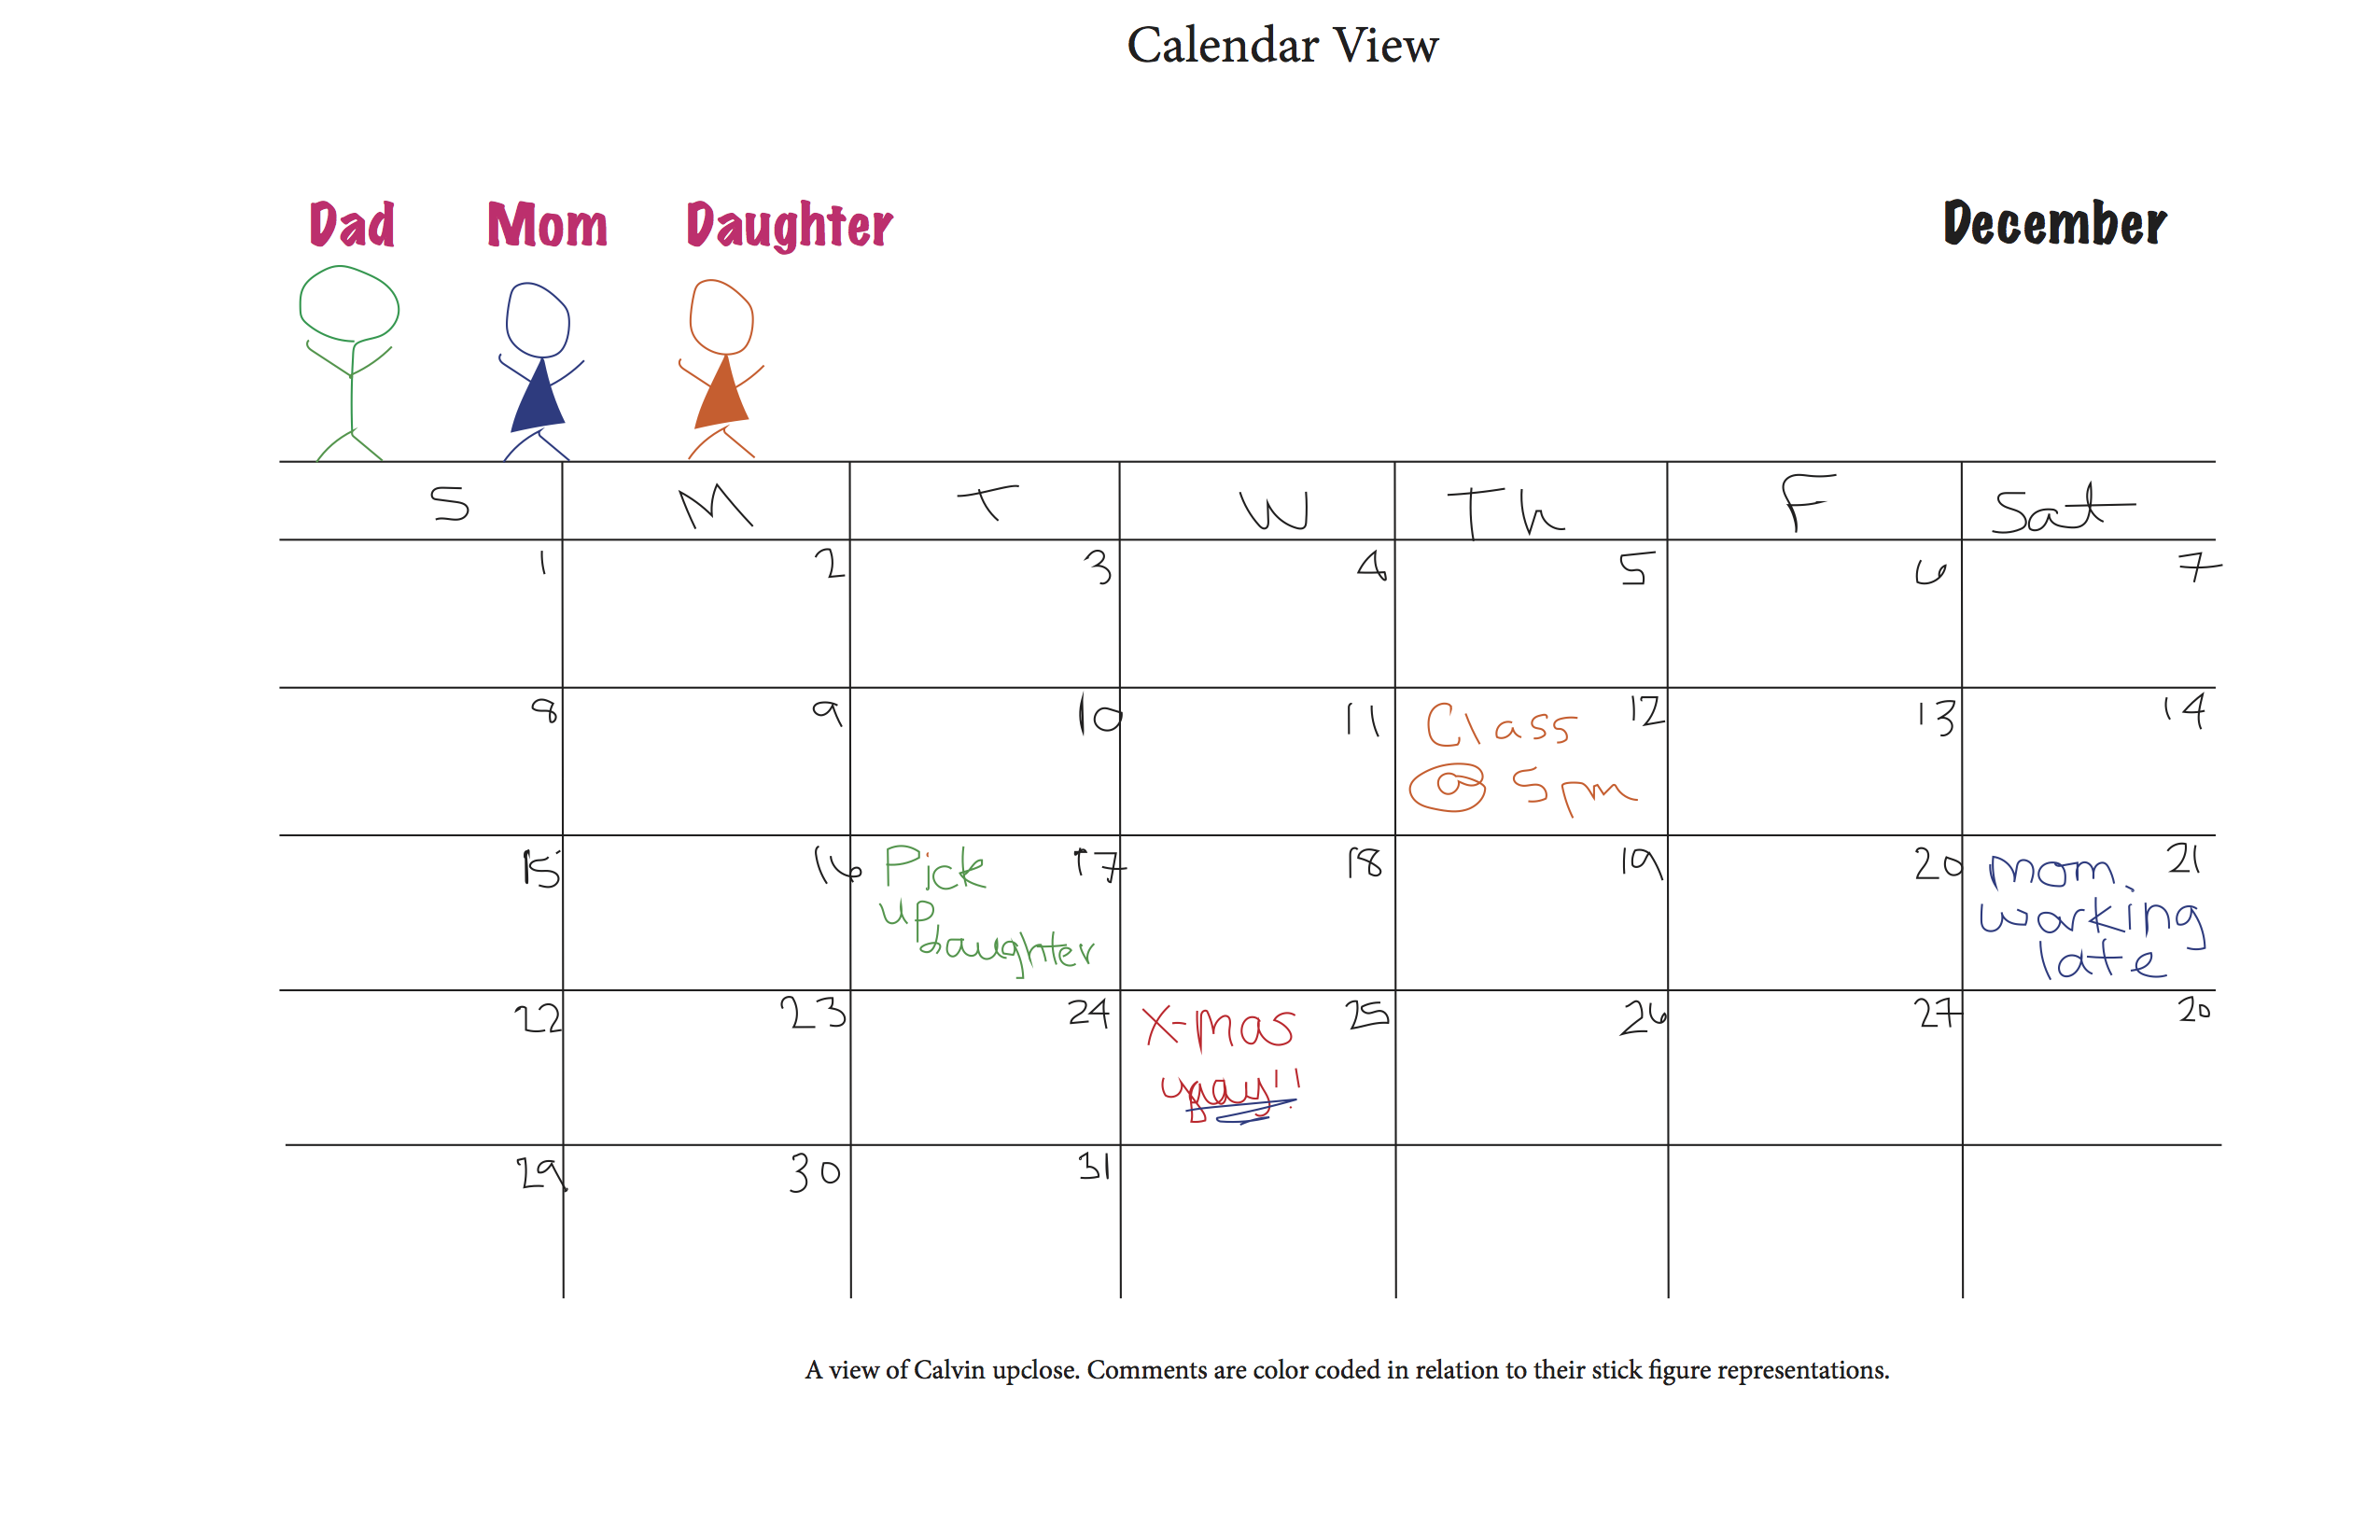 Calendar View
Dad Mom Daughter December
S M T W Th F Sat
1 2 3 4 5 6 7
8 9 10 11 12 13 14
Class
@ 5pm
15 16 17 18 19 20 21
Pick
up
daughter
mom
working
late
22 23 24 25 26 27 20
X-mas
yay!!
29 30 31
A view of Calvin upclose. Comments are color coded in relation to their stick figure representations.